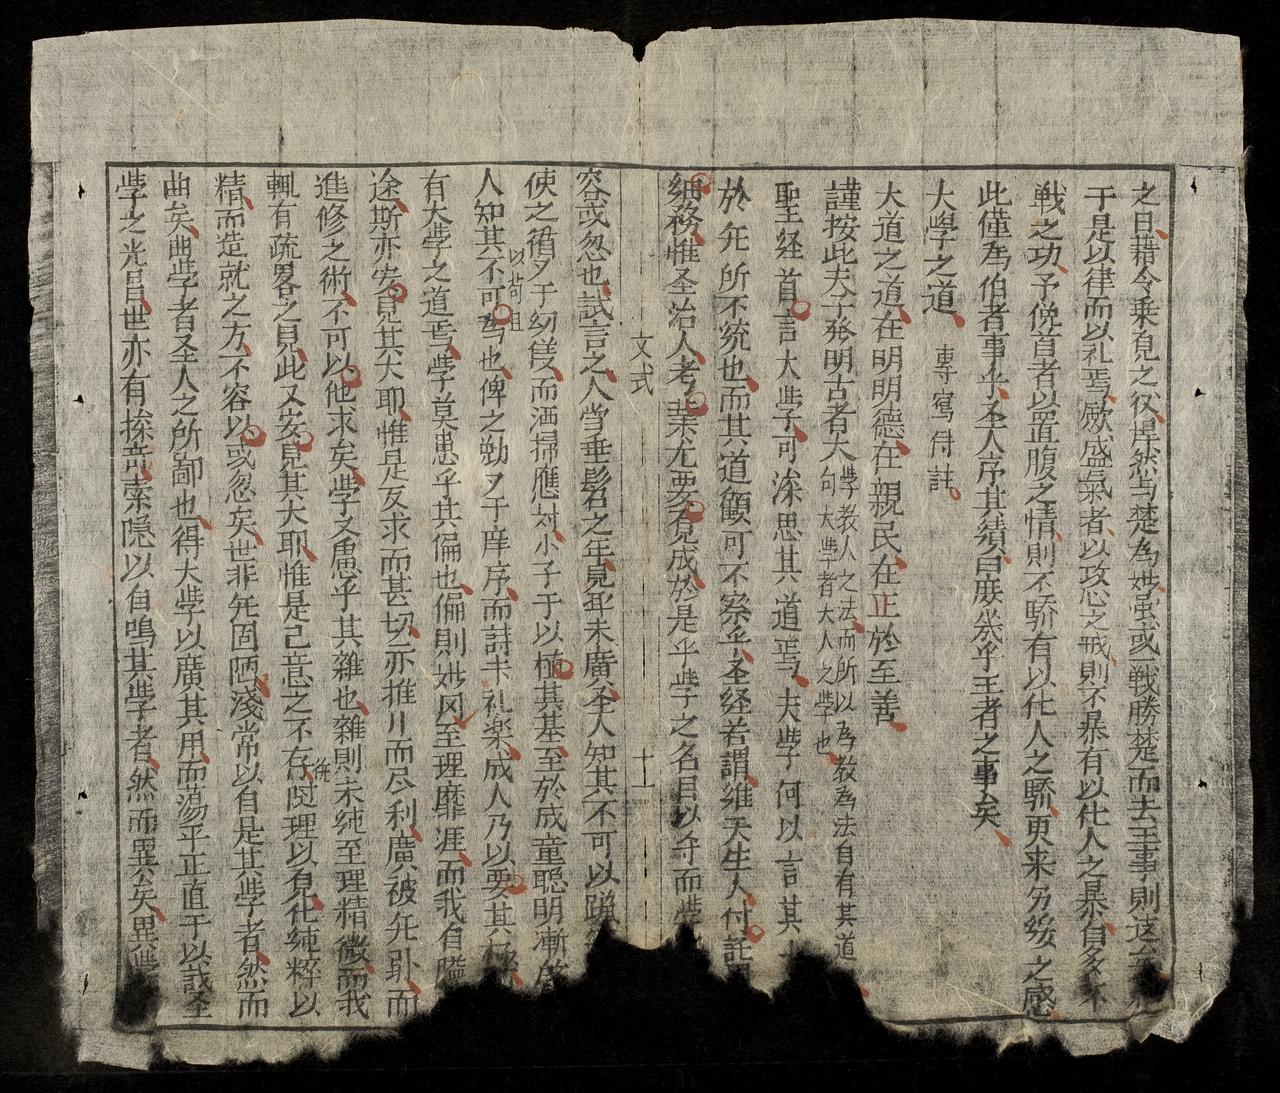 之日藉令乗見之役悍然与楚為𡗝衛或一戦勝楚而去王事則
于是以律而以礼焉厥盛氣者以攻忿之戒則不暴有以化人之暴自多不
戦之功予俛首者以置腹之情則不驕有以化人之驕更来之感
此僅為伯者事乎圣人序其績曰庶㡬乎王者之事矣
大學之道 專寫併註
大道之道在明明德在親民在正於至善
謹按此夫子發明古者大學教人之法而所以為教為法自有其道
句大學者大人之學也
聖経首言大學可深思其道焉夫學何以言其
於无所不統也而其道顧可不察乎圣経若謂維天生人付託
細務惟圣治人考業尤要有成於是乎學之名目以兮而
文式
十一
容或忽也試言之人當垂髫之年見耳未廣圣人知其不可以
使之循又于幼儀而洒掃應対小子于以植其基至於成童聡明漸
以苟且
人知其不可為也俾之勤又于庠序而詩书礼楽成人乃以要其
有大學之道焉學莫患乎其偏也偏則𡗝冈至理靡涯而我自隘
途斯亦安見其大耶惟是反求而甚切亦推川而尽利廣被无引而
進修之術不可以他求矣學又患乎其雜也雜則未純至理精微而我
輒有疏畧之見此又安見其大耶惟是己意之不存究理以見化純粹以
精而造就之方不容以或忽矣世非无固陋淺常以自是其學者然而
曲矣曲學者圣人之所鄙也得大學以廣其用而蕩平正直于以誠全
學之光昌世亦有探竒索隠以自鳴其學者然而異矣異學